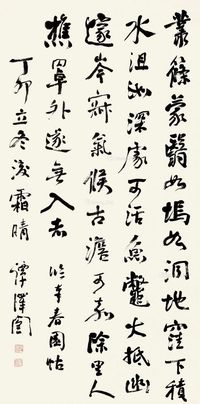 叢篠蒙翳如塢如洞地窪下積
水沮洳深處可活魚鼈大抵幽
邃岑寂氣候古澹可嘉除里人
樵罩外遂無入者 臨春園帖
丁卯立冬後霜晴 譚澤闓